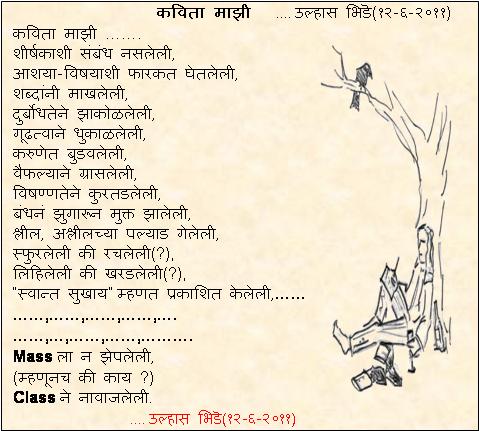 कविता माझी ....उल्हास भिडे(१२-६-२०११)
कविता माझी .......
शीर्षकाशी संबंध नसलेली,
आशया-विषयाशी फारकत घेतलेली,
शब्दांनी माखलेली,
दुर्बोधतेने झाकोळलेली,
गूढत्वाने धुकाळलेली,
करुणेत बुडवलेली,
वैफल्याने ग्रासलेली,
विषण्णतेने कुरतडलेली,
बंधनं झुगारून मुक्त झालेली,
श्लील, अश्लीलच्या पल्याड गेलेली,
स्फुरलेली की रचलेली(?),
लिहिलेली की खरडलेली(?),
"स्वान्त सुखाय" म्हणत प्रकाशित केलेली,......
......,......,......,......,....
......,...,......,......,.........
Mass ला न झेपलेली,
(म्हणूनच की काय ?)
Class ने नावाजलेली.
....उल्हास भिडे(१२-६-२०११)